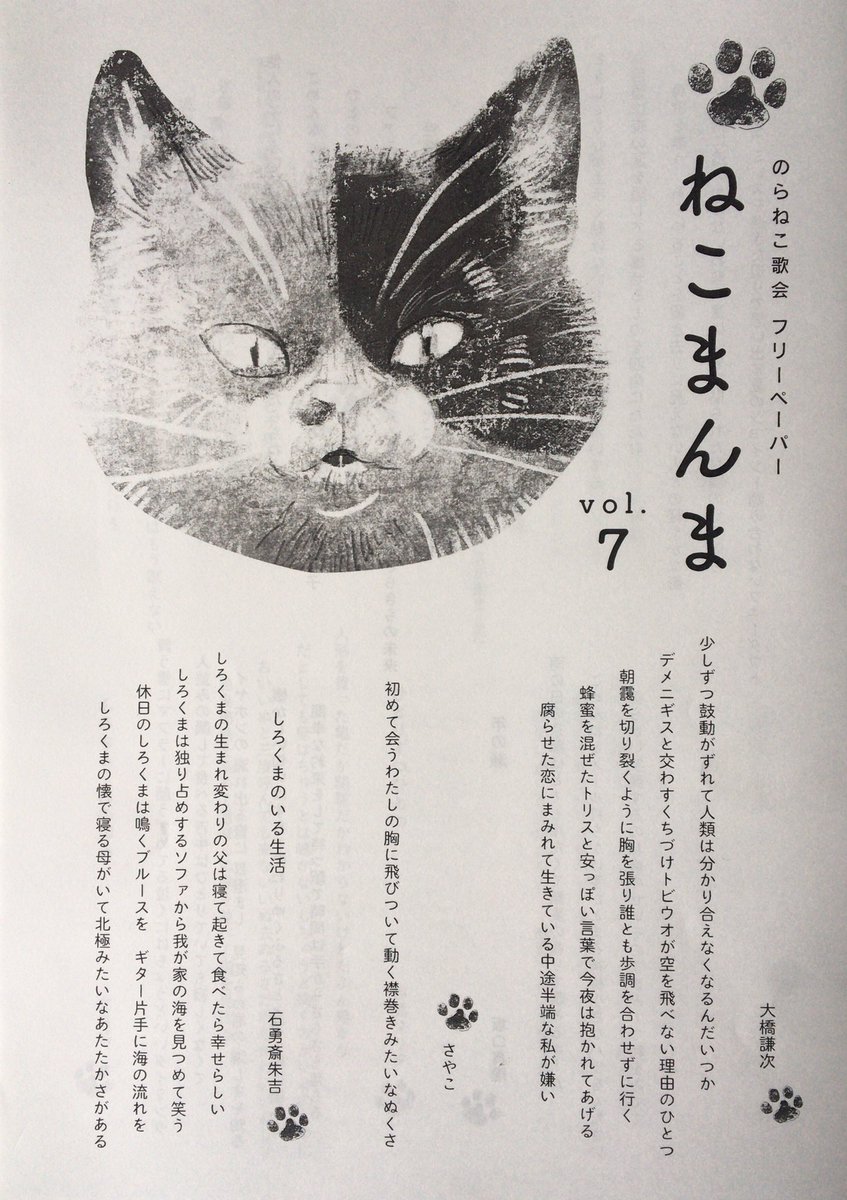 のらねこ歌会 フリーペーパー
ねこまんま
vol.
7
大橋謙次
少しずつ鼓動がずれて人類は分かり合えなくなるんだいつか
デメニギスと交わすくちづけトビウオが空を飛べない理由のひとつ
朝靄を切り裂くように胸を張り誰とも歩調を合わせずに行く
蜂蜜を混ぜたトリスと安っぽい言葉で今夜は抱かれてあげる
腐らせた恋にまみれて生きている中途半端な私が嫌い
さやこ
初めて会うわたしの胸に飛びついて動く襟巻きみたいなぬくさ
石勇斎朱吉
しろくまのいる生活
しろくまの生まれ変わりの父は寝て起きて食べたら幸せらしい
しろくまは独り占めするソファから我が家の海を見つめて笑う
休日のしろくまは鳴くブルースを　ギター片手に海の流れを
しろくまの懐で寝る母がいて北極みたいなあたたかさがある